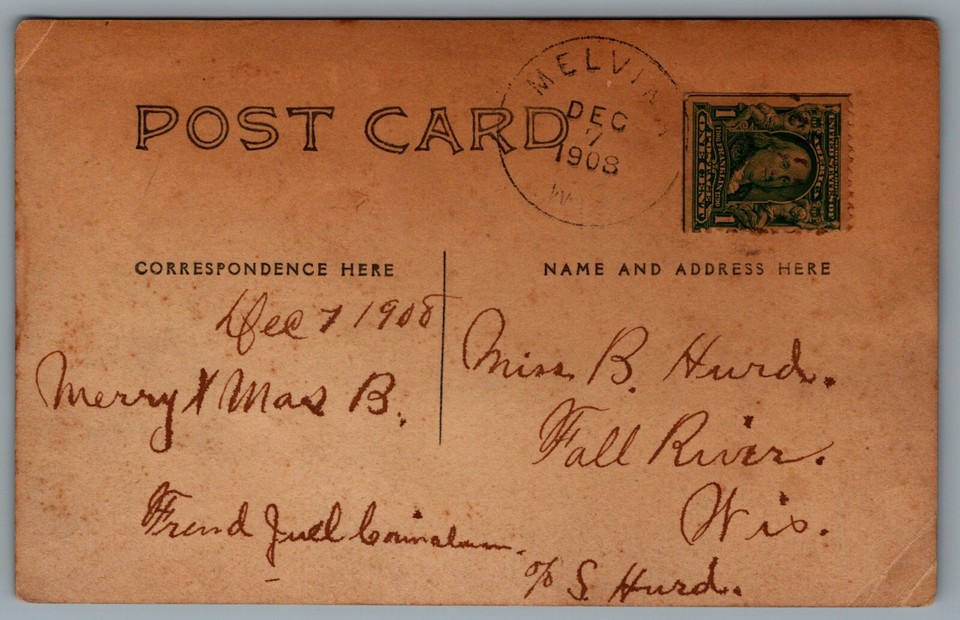 POST CARD
MELVIA
DEC
7
1908
CORRESPONDENCE HERE
NAME AND ADDRESS HERE
Dec 7 1908
Merry X Mas B.
Frend
Miss B. Hurd.
Fall River.
Wis.
c/o S. Hurd.